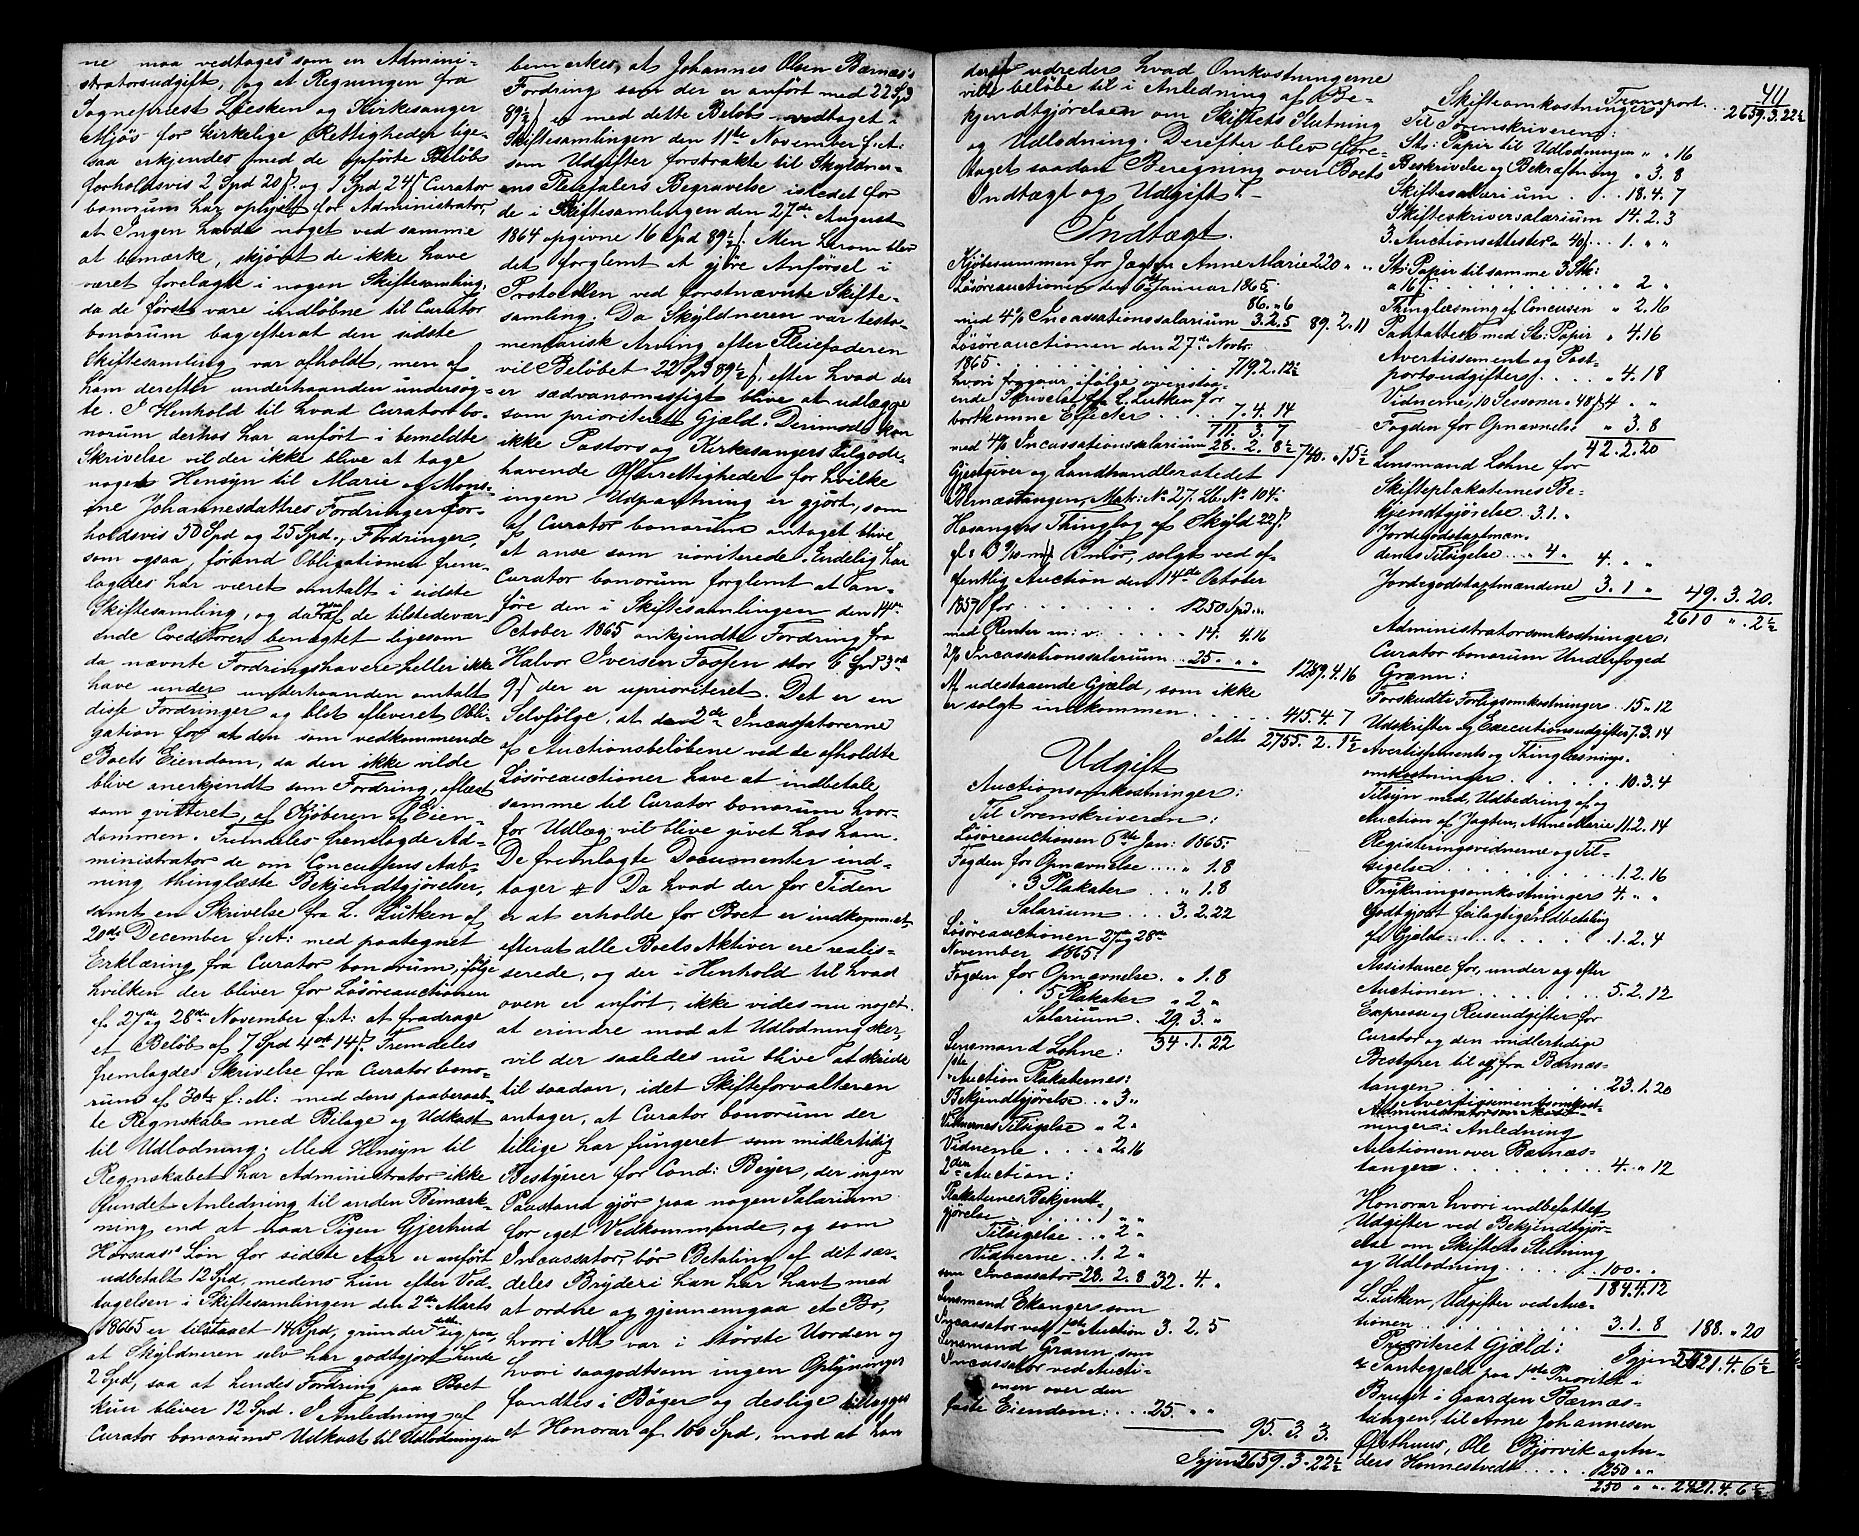 ne maa vedtages som en Admini-
stratorsudgift, og at Regningen fra
Sognepriest Løesken og Kirkesanger
Mjøs for kirkelige Rettigheder lige-
saa erkjendes med de opførte Beløb
forholdsvis 2 Spd 20 ß og 1 Spd 24 ß Curator
bonorum har oplyst for Administrator,
at Ingen havde noget ved samme
at bemærke, skjønt de ikke have
været forelagte i nogen Skiftesamling,
da de først vare indløbne til Curator
bonorum bagefter at den sidste
Skiftesamling var afholdt, men af
ham derefter underhaanden undersøg-
te. I Henhold til hvad Curator bo-
norum derhos har anført i bemeldte
Skrivelse vil der ikke blive at tage
noget Hensyn til Marie og Mons-
ine Johannesdatters Fordringer for-
holdsvis 50 Spd og 25 Spd, Fordringer,
som ogsaa, førend Obligationen frem-
lagdes har været omtalt i sidste
Skiftesamling, og da af de tilstedevær-
ende Creditorer benægtet ligesom
da nævnte Fordringshavere heller ikke
have under underhaanden omtalt
disse Fordringer og blot afleveret Obli-
gation for at den som vedkommende
Boets Eiendom, da den ikke vilde
blive anerkjendt som Fordring, aflæst
som qvitteret, af Kjøberen af Eien-
dommen. Fremdeles fremlagde Ad-
ministrator de om Concursens Aab-
ning thinglæste Bekjendtgjørelser,
samt en Skrivelse fra L. Lütken af
20de December f: A: med paategnet
Erklæring fra Curator bonorum, ifølge
hvilken der bliver for Løsøreauctionen
af 27de og 28de November f: A: at fradrage
et Beløb af 7 Spd 4 ort 14 ß. Fremdeles
fremlagdes Skrivelse fra Curator bono-
rum af 30te f: M: med dens paaberaab-
te Regnskab med Bilage og Udkast
til Udlodning. Med Hensyn til
Regnskabet har Administrator ikke
fundet Anledning til anden Bemærk-
ning, end at naar Pigen Gjertrud
Hornaas's Løn for sidste Aar er anført
udbetalt 12 Spd, medens hun efter Ved-
tagelsen i Skiftesamlingen den 2den Marts
1865 er tilstaaet 14 Spd, grunder dette sig paa
at Skyldneren selv har godtgjort hende
2 Spd, saa at hendes Fordring paa Boet
kun bliver 12 Spd. I Anledning af
Curator bonorums Udkast til Udlodningen
bemærkes, at Johannes Olsen Bærnæs's
Fordring som der er anført med 22 Spd
89½ ß er med dette Beløb vedtaget i
Skiftesamlingen den 11te November f: A:
som Udgifter forstrakte til Skyldner-
ens Pleiefaders Begravelse istedet for
de i Skiftesamlingen den 27de August
1864 opgivne 16 Spd 89½ ß. Men herom blev
det forglemt at gjøre Anførsel i
Protocollen ved førstnævnte Skifte-
samling. Da Skyldneren var testa-
mentarisk Arving efter Pleiefaderen
vil Beløbet 22 Spd 89½ ß, efter hvad der
er sædvansmæssigt blive at udlægge
som prioriteret Gjæld. Derimod kan
ikke Pastors og Kirkesangers Tilgode-
havende Offerrettigheder for hvilke
ingen Udpantning er gjort, som
af Curator bonorum antaget blive
at anse som prioriterede. Endelig har
Curator bonorum forglemt at an-
føre den i Skiftesamlingen den 14de
October 1865 ankjendte Fordring fra
Halvor Iversen Fossen stor 6 Spd 3 ort
9 ß der er uprioriteret. Det er en
Selvfølge, at de 2de Incassatorerne
af Auctionsbeløbene ved de afholdte
Løsøreauctioner have at indbetale
samme til Curator bonorum hvor-
for Udlæg vil blive givet hos ham.
De fremlagte Documenter ind-
tages # Da hvad der for Tiden
er at erholde for Boet er indkommet
efterat alle Boets Aktiver ere realis-
serede, og der i Henhold til hvad
oven er anført, ikke vides nu noget
at erindre mod at Udlodning sker,
vil der saaledes nu blive at skride
til saadan, idet Skifteforvalteren
antager, at Curator bonorum der
tillige har fungeret som midlertidig
Bestyrer for Cand: Beyer, der ingen
Paastand gjør paa nogen Salarium
for eget Vedkommende, og som
Incassator, bør Betaling af det sær-
deles Bryderi han har havt med
at ordne og gjennemgaa et Bo,
hvori Alt var i største Uorden og
hvori saagodtsom ingen Oplysninger
fandtes i Bøger og deslige tillægges
et Honorar af 100 Spd, mod at han
deraf udreder hvad Omkostningerne
ville beløbe til i Anledning af Be-
kjendtgjørelsen om Skiftets Slutning
og Udlodning. Derefter blev fore-
taget saadan Beregning over Boets
Indtægt og Udgift:
Indtægt.
Kjøbesummen for Jagten Anne Marie 220 " "
Løsøreauctionen den 6te Januar 1865
86. " 6
med 4% Incassationssalarium 3. 2. 5 89. 2. 11
Løsøreauctionen den 27de Novbr.
1865 . . . . . 719. 2. 12½
hvori fragaar, ifølge ovenstaa-
ende Skrivelse fra L. Lütken for
bortkomne Effecter . . . 7. 4. 14
711. 3. 7
med 4% Incassationssalarium 28. 2. 8½ 740. " 15½
Gjestgiver og Landhandlerstedet
Bærnæstangen, Matr: No 27. Lb. No 104.
Hosangers Thinglag af Skyld 22 ß
gl: Smør, solgt ved of-
fentlig Auction den 14de October
for . . . . . . 1250 Spd " "
med Renter m: v: . . . 14. 4. 16
2% Incassationssalarium . . 25. " " 1289. 4. 16
Af udestaaende Gjæld, som ikke
er solgt indkommen . . . . . 415. 4. 7
Ialt 2755. 2. 1½
Udgift
Auctionsomkostninger:
Til Sorenskriveren:
Løsøreauctionen 6te Jan: 1865:
Fogden for Opnævnelse . . . " 1. 8
3 Plakater . . . " 1. 8
Salarium . . . 3. 2. 22
Løsøreauctionen 27de og 28de
November 1865:
Fogden for Opnævnelse. " 1. 8
5 Plakater " 2 "
Salarium. 29. 3. "
34. 1. 22
Lensmand Lohne:
1ste Auction Plakaternes:
Bekjendtgjørelse . . " 3 "
Vidnernes Tilsigelse " 2 "
Vidnerne . . . . " 2. 16
2den Auction:
Plakaternes Bekjendt-
gjørelse . . . . . . 1 " "
Tilsigelse . . " 2 "
Vidnerne . . 1. 2 "
som Incassator 28. 2. 8 32. 4. "
Lensmand Ekanger som
Incassator ved 1ste Auction 3. 2. 5
Lensmand Grann som
Incassator ved Aucti-
onen over den
faste Eiendom: . . . 25. " "
95. 3. 3.
Igjen 2659. 3. 22½
411
Transport . . . 2659. 3. 22½
Skifteomkostninger:
Til Sorenskriveren:
St: Papir til Udlodningen " " 16
Beskrivelse og Bekræftning " 3. 8
Skiftesalarium . . . 18. 4. 7
Skifteskriversalarium 14. 2. 3
3 Auctionsattester a 40 ß . . 1. " "
St: Papir til samme 3 Stk:
a 16 ß . . . . . . . " 2 "
Thinglæsning af Concursen " 2. 16
Pantattest med St: Papir " 4. 16
Avertissement og Post-
portoudgifter . . . . " 4. 18
Vidnerne, 10 Sessioner a 48 ß 4 " "
Fogden for Opnævnelse " 3. 8
42. 2. 20
Lensmand Lohne for
Skifteplakaternes Be-
kjendtgjørelse . 3. 1. "
Jordegodstaxtmæn-
denes Tilsigelse . . " 4. " 4. " "
Jordegodstaxtmændene 3. 1 " 49. 3. 20.
2610 " 2½
Administratorsomkostninger:
Curator bonorum Underfoged
Grann:
Forskudte Forligsomkostninger 15 " 12
Udskrifter og Executionsudgifter 7. 3. 14
Avertissements og Thinglæsnings-
omkostninger . . . . . . 10. 3. 4
Tilsyn med, Udbedring af og
Auction af Jagten, Anne Marie 11. 2. 14
Registreringsvidnerne og Til-
sigelse . . . . . . . . 1. 2. 16
Trykningsomkostninger 4. " "
Godtgjort feilagtig Indbetaling
af Gjæld . . . . . . . . . 1. 2. 4
Assistance for, under og efter
Auctionen . . . . . . . . 5. 2. 12
Expresse og Reiseudgifter for
Curator og den midlertidige
Bestyrer til og fra Bærnæs-
tangen . . . . . . . . . 23. 1. 20
Avertissementsomkost-
ninger i Anledning
Auctionen over Bærnæs-
tangen . . . . . . . . . 4. " 12
Honorar hvori indbefattet
Udgifter ved Bekjendtgjør-
else om Skiftets Slutning
og Udlodning . . . . . . 100 " "
184. 4. 12
L. Lütken, Udgifter ved Auc-
tionen . . . . . . . . . 3. 1. 8 188. " 20
Igjen 2421. 4. 6½
Prioriteret Gjæld:
a Pantegjæld paa 1ste Prioritet i
Bruget i Gaarden Bærnæs-
tangen, til Arne Johannesen
Østhuus, Ole Bjørvik og An-
ders Hannestvedt . . . . . 1250 " "
250 " " 2421. 4. 6½